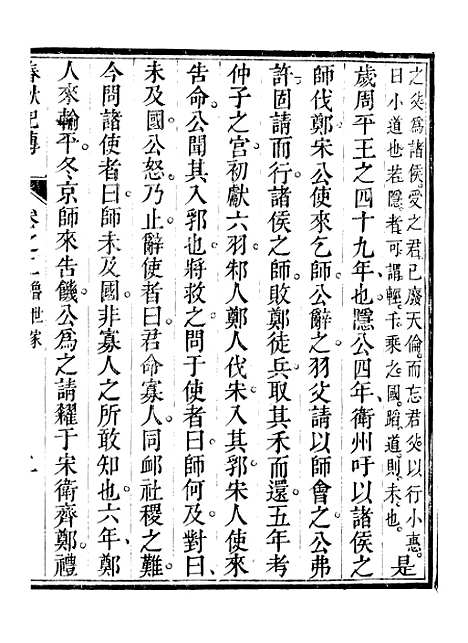 之从爲諸侯受之君已廢天倫而忘君父以行小惠
曰小道也若隱者可謂輕千乘之國蹈道則未也是
歲周平王之四十九年也隱公四年衛州吁以諸侯之
師伐鄭宋公使來乞師公辭之羽父請以師會之公弗
許固請而行諸侯之師敗鄭徒兵取其禾而還五年考
仲子之宮初獻六羽邾人鄭人伐宋入其郛宋人使來
告命公聞其入郛也將救之問于使者曰師何及對曰
未及國公怒乃止辭使者曰君命寡人同邮社稷之難
今問諸使者曰師未及國非寡人之所敢知也六年鄭
人來輸平冬京師來告饑公爲之請糴于宋衛齊鄭禮
春秋紀傳
卷之二魯世家